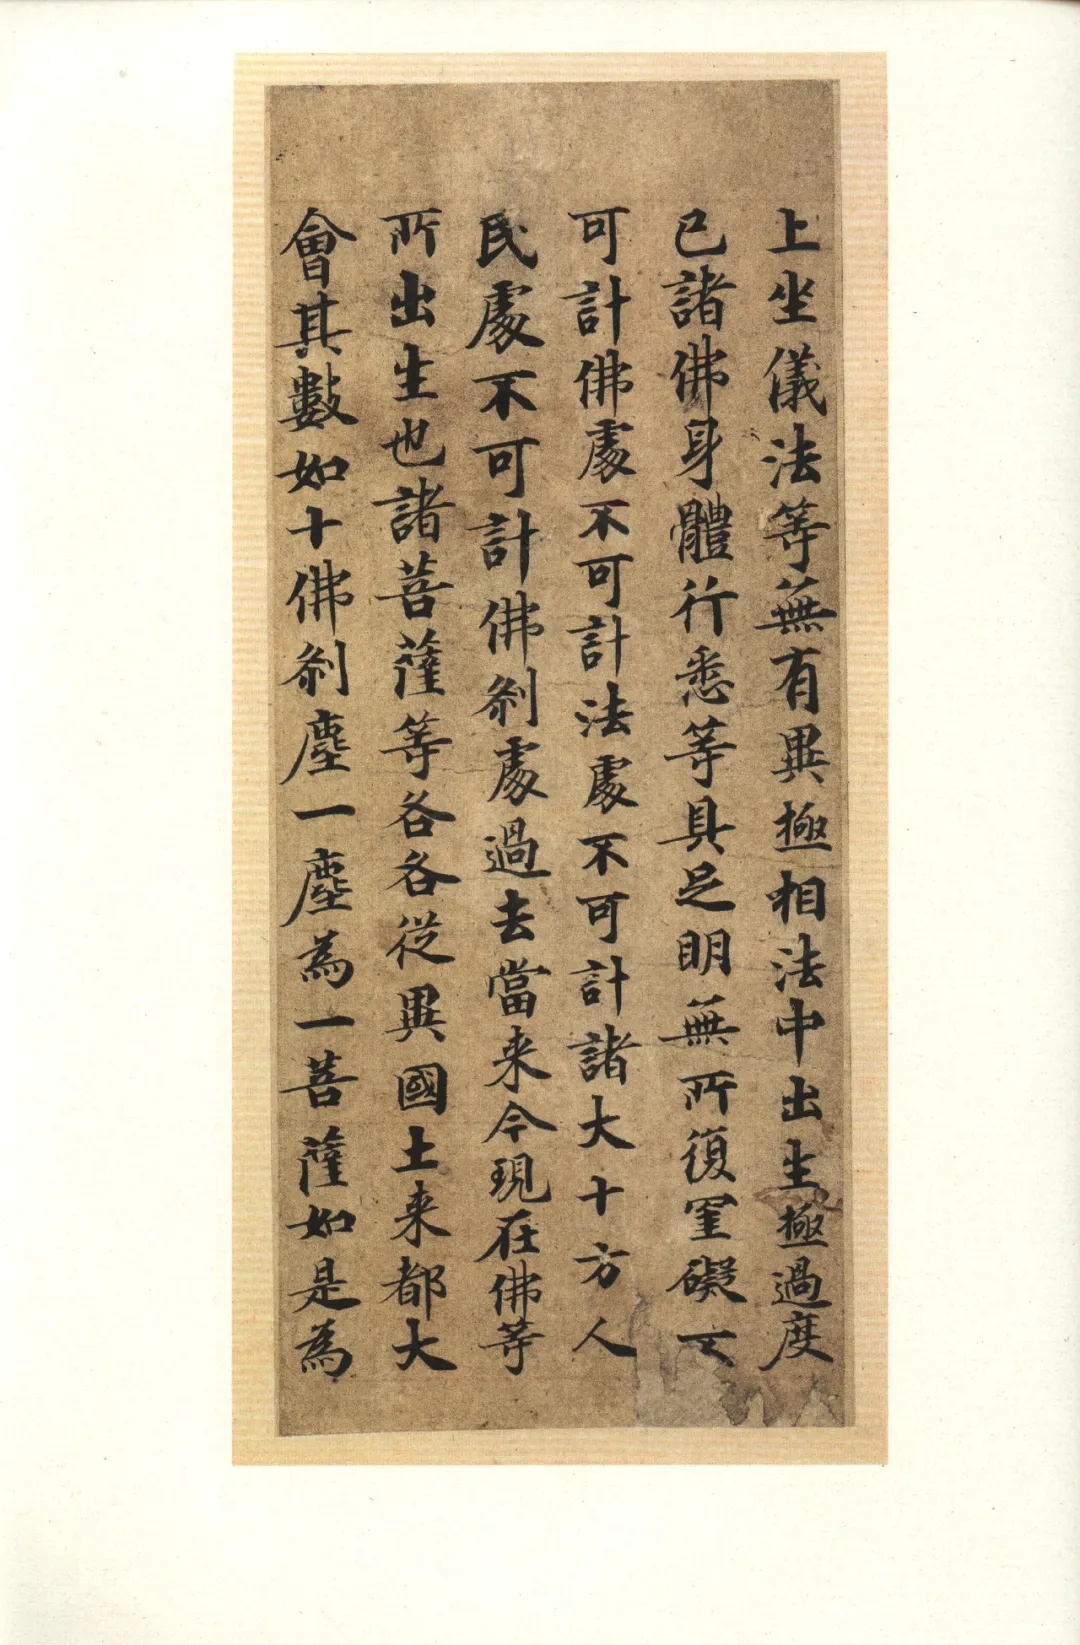 上坐儀法等無有異極相法中出生極過度
已諸佛身體行悉等具足明無所復罣礙
可計佛處不可計法處不可計諸大十方人
民處不可計佛剎處過去當来今現在佛等
所出生也諸菩薩等各各從異國土来都大
會其數如十佛剎塵一塵為一菩薩如是為